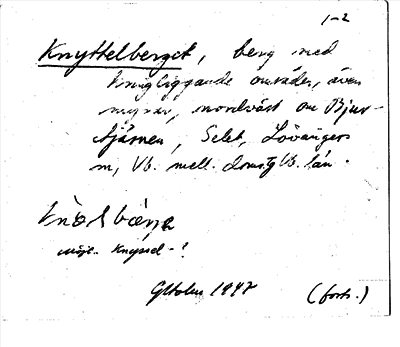 1-2
Knyttelberget, berg med
kringliggande områden, även
myrar, nordväst om Bjur-
tjärnen, Selet, Lövångers
sn, Vb. mell. domsg Vb. län.
möjl. Knyssel-?
GHolm 1947
(forts.)